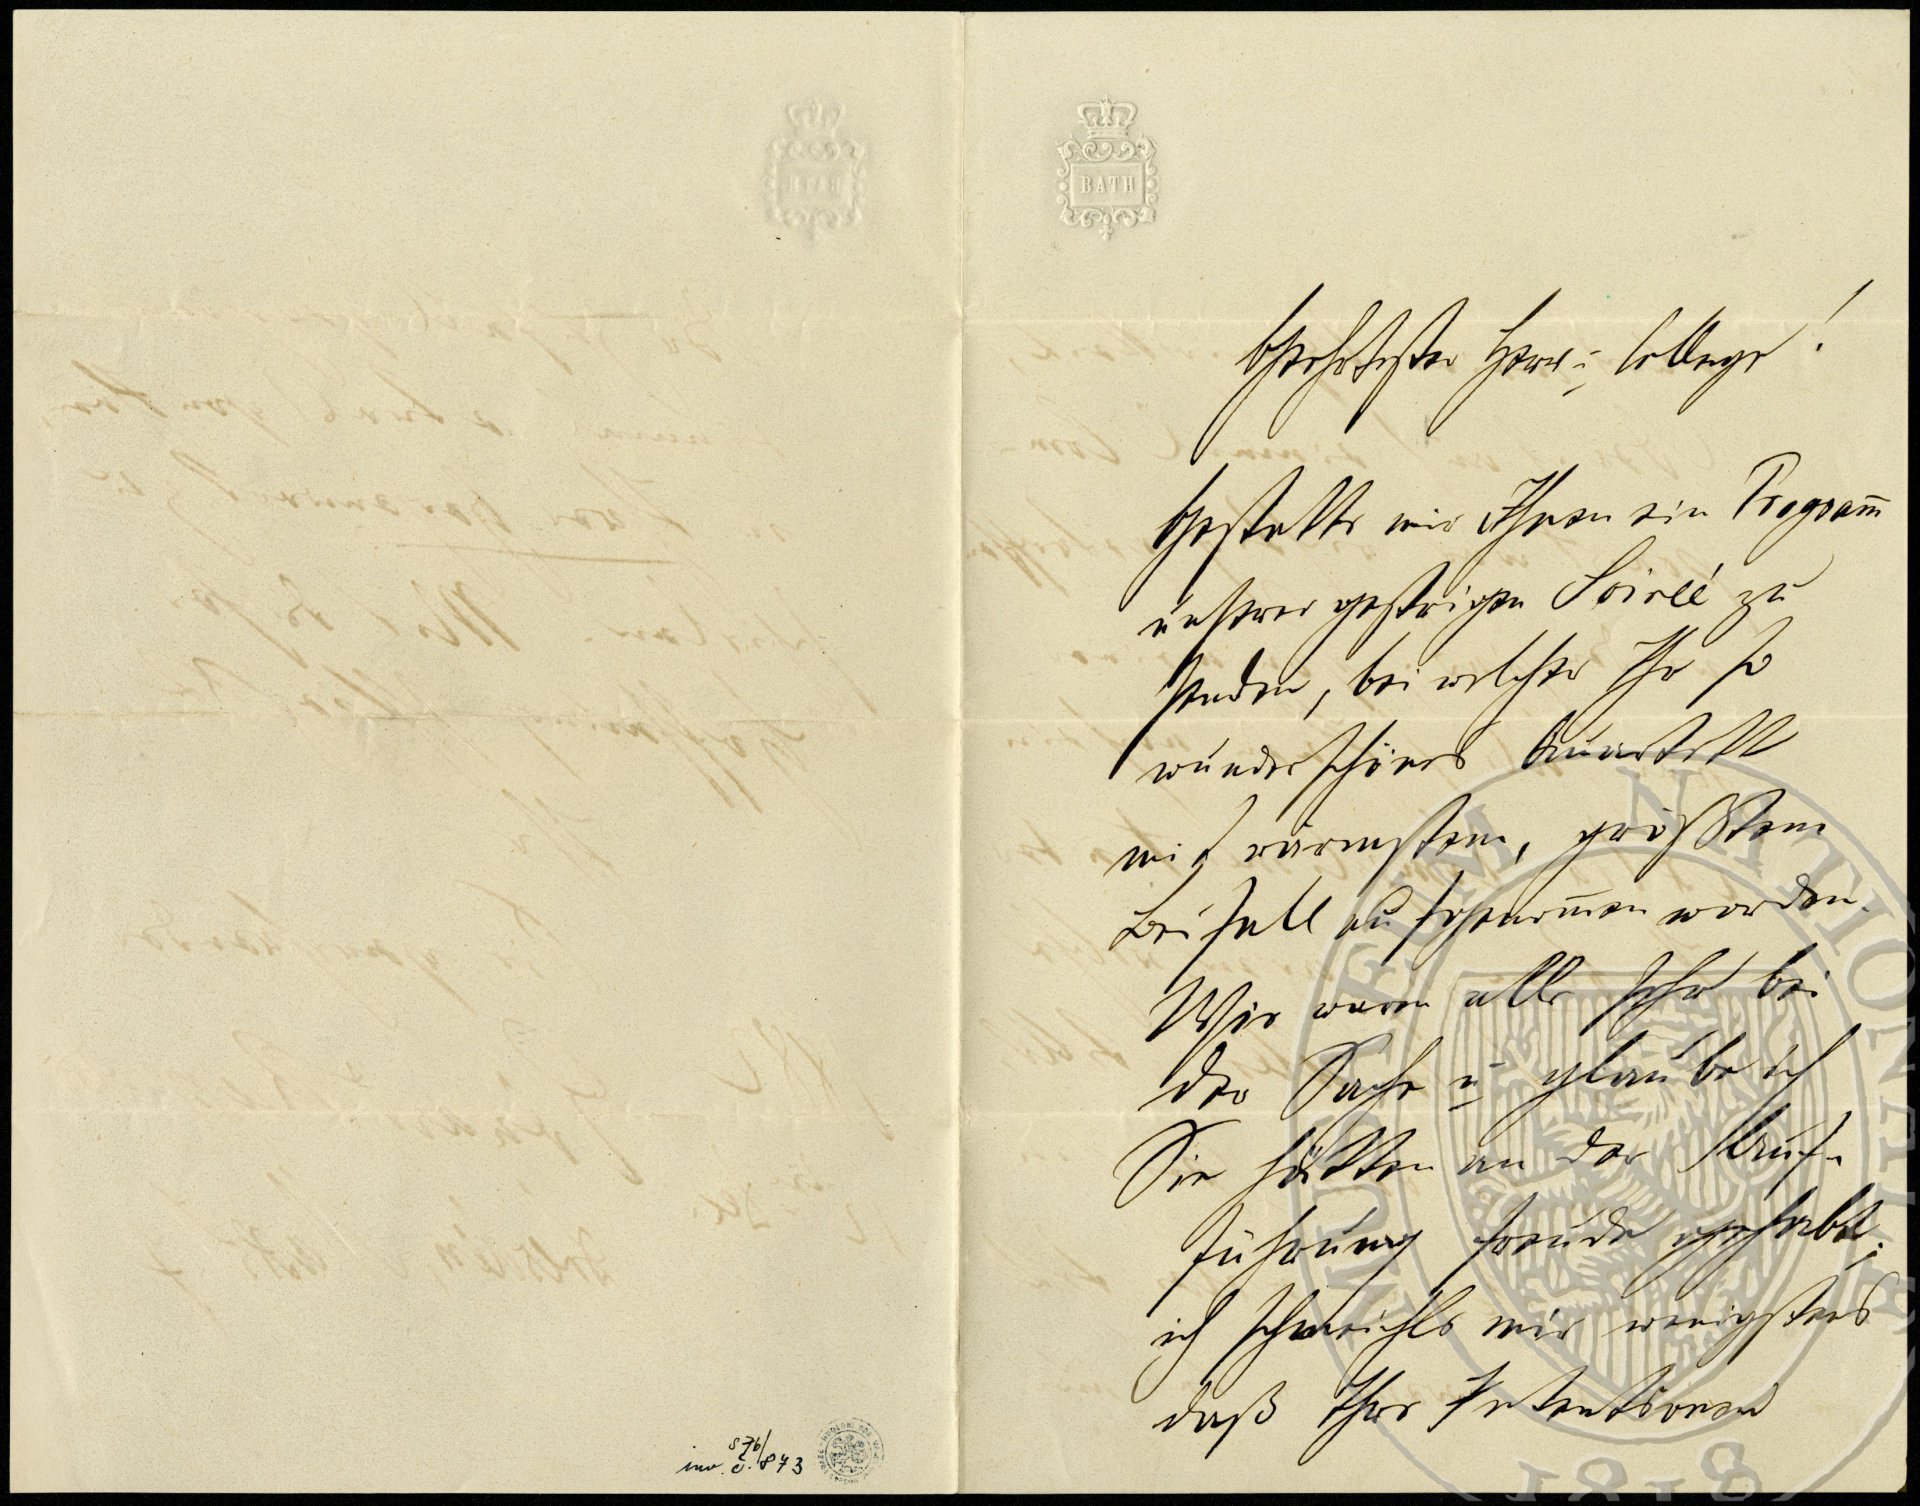 BATH
Geehrtester Herr u College!
Gestatte mir Ihnen ein Programm̅
unserer gestrigen Soireé zu
senden, bei welcher Ihr so
wunderschönes Quartett
mit wärmstem, größtem
Beifall aufgenom̅en worden.
Wir waren alle sehr bei
der Sache u glaube ich
Sie hätten an der Auf-
führung Freude gehabt;
ich schmeichle mir wenigstens
daß Ihre Intentionen
S 76/
inv. č. 873
MUSEUM NATIONALE
1818